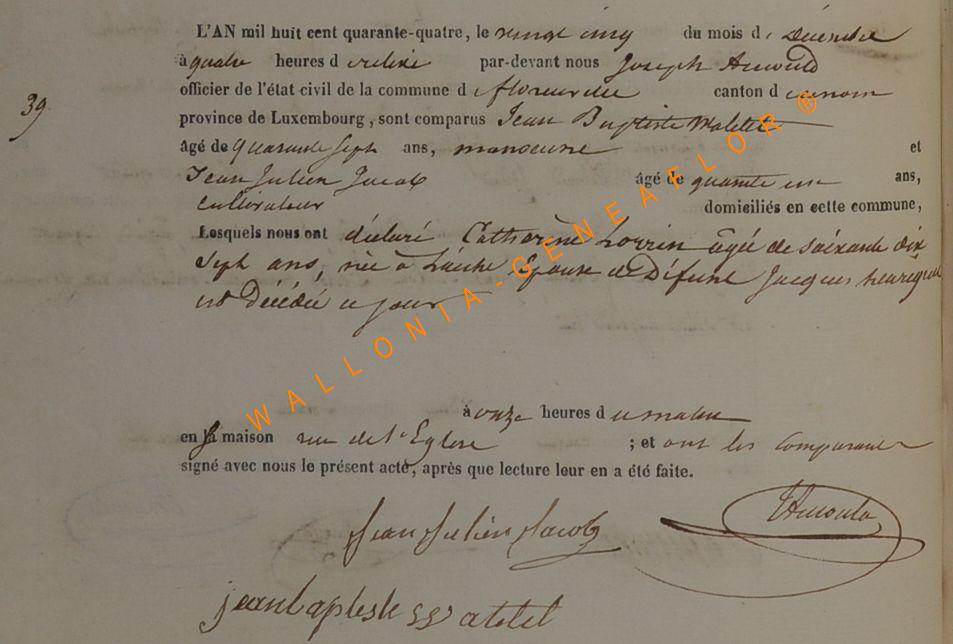 L'AN mil huit cent quarante-quatre, le vingt cinq du mois de Décembre
à quatre heures de relevée par-devant nous Joseph Arnould
officier de l'état civil de la commune de florenville canton d idem
39
province de Luxembourg, sont comparus Jean Baptiste Watelet
âgé de quarante sept ans, manoeuvre et
Jean Julien Jacob âgé de quarante un ans,
cultivateur domiciliés en cette commune,
Lesquels nous ont déclaré Catherine Lorrin âgée de soixante dix
sept ans, née à Laiche Epouse de Défunt Jacques henrequel
est Décédée ce jour
à onze heures du matin
en sa maison rue de l'Eglise ; et ont les comparants
signé avec nous le présent acte, après que lecture leur en a été faite.
WALLONIA-GENEAFLOR ®
JArnould
Jean Julien Jacob
jean baptiste watelet